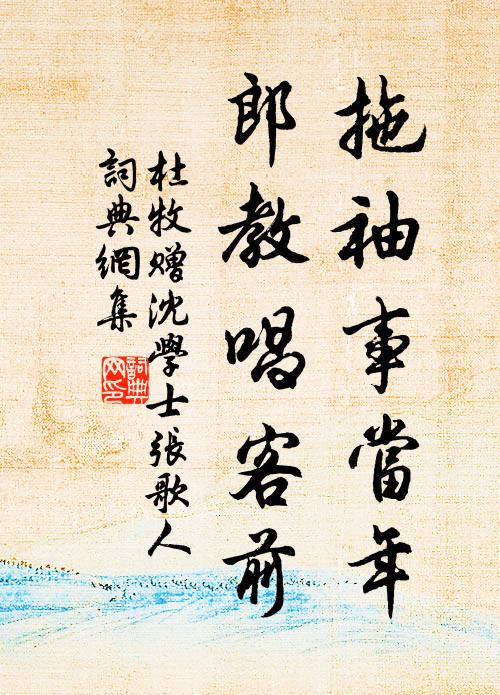 拖袖事當年
郎教唱客前
杜牧贈沈學士張歌人
詞典網集
詞典
网印